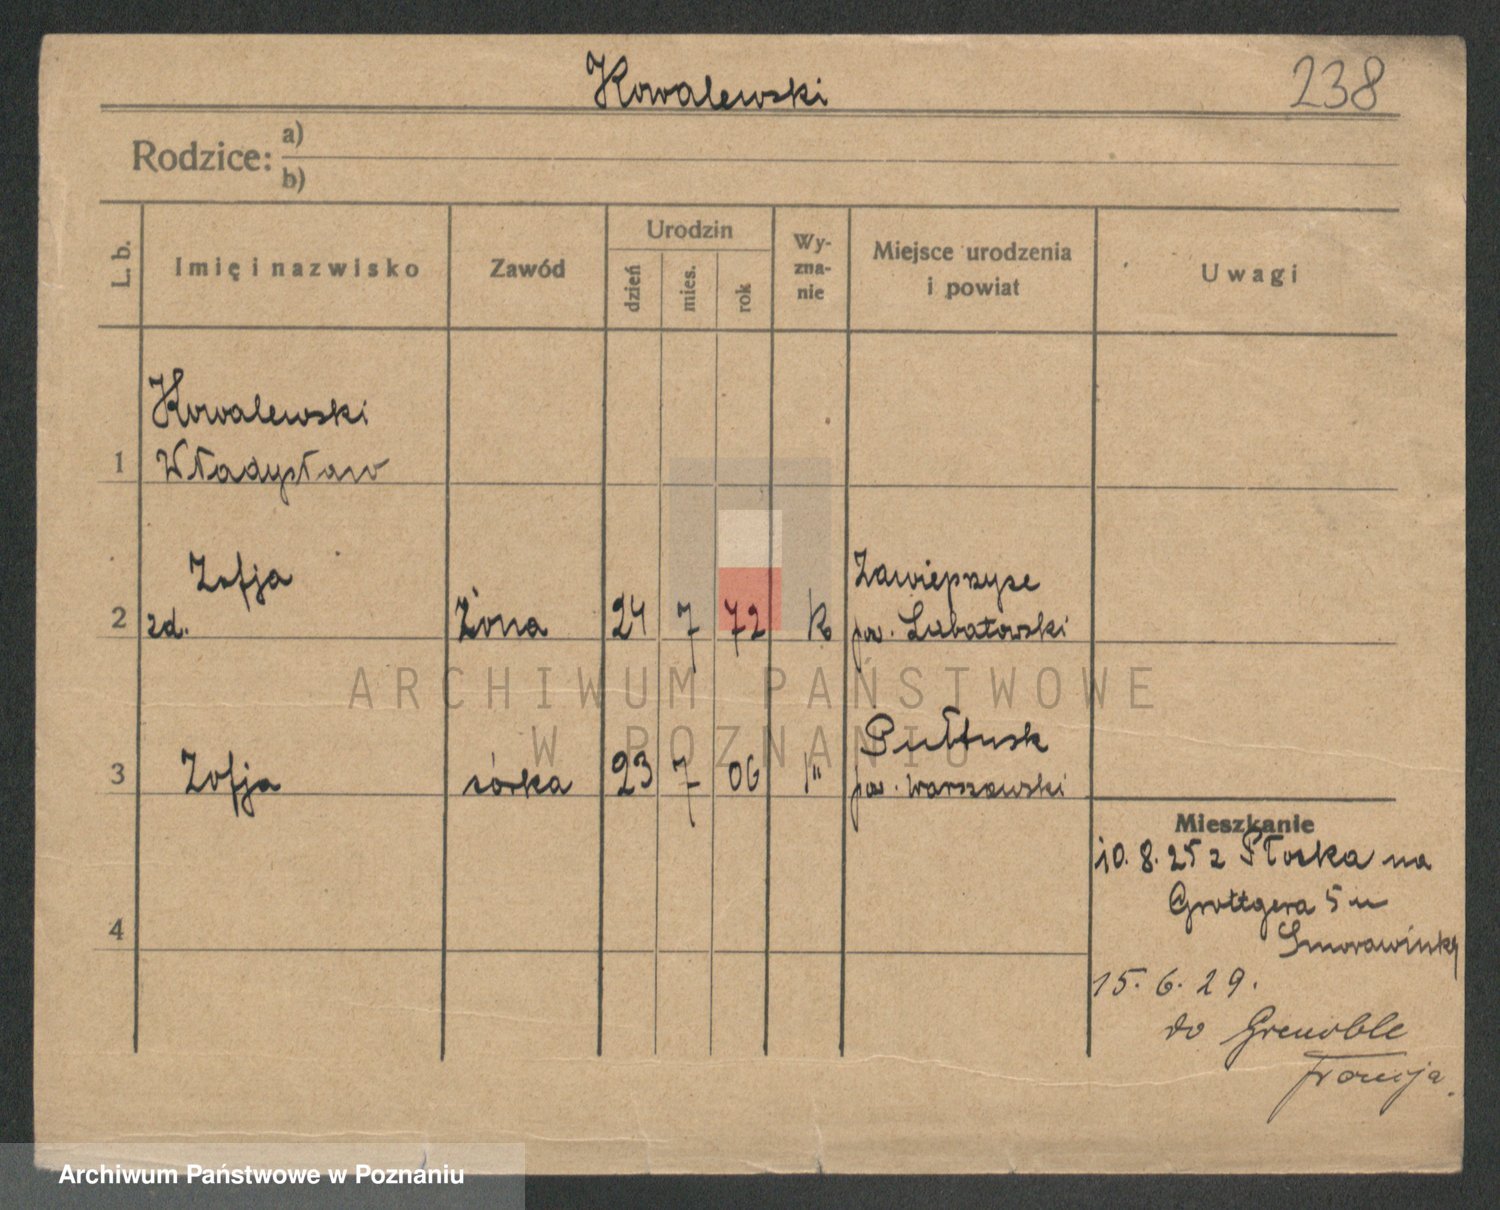 Kowalewski
238
Rodzice:
a)
b)
L. b.
Imię i nazwisko
Zawód
Urodzin
dzień
mies.
rok
Wy-
zna-
nie
Miejsce urodzenia
i powiat
Uwagi
1
Kowalewski
Władysław
2
Zofja
zd.
Żona
24
7
72
k
Zawieprzyce
pow. Lubatowski
3
Zofja
córka
23
7
06
"
Pułtusk
pow. Warszawski
4
Mieszkanie
10. 8. 25 z Płocka na
Grottgera 5 u
Smorawinka
15. 6. 29.
do Grenoble
Francja.
ARCHIWUM PAŃSTWOWE
W POZNANIU
Archiwum Państwowe w Poznaniu